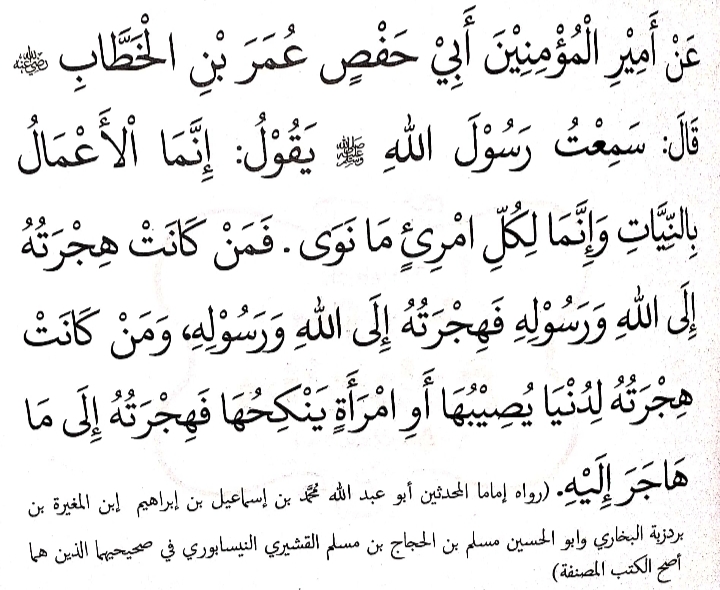 عَنْ أَمِيْرِ الْمُؤْمِنِيْنَ أَبِيْ حَفْصٍ عُمَرَ بْنِ الْخَطَّابِ رضي الله عنه
قَالَ: سَمِعْتُ رَسُوْلَ اللهِ ﷺ يَقُوْلُ: إِنَّمَا الْأَعْمَالُ
بِالنِّيَّاتِ وَإِنَّمَا لِكُلِّ امْرِئٍ مَا نَوَى . فَمَنْ كَانَتْ هِجْرَتُهُ
إِلَى اللهِ وَرَسُوْلِهِ فَهِجْرَتُهُ إِلَى اللهِ وَرَسُوْلِهِ، وَمَنْ كَانَتْ
هِجْرَتُهُ لِدُنْيَا يُصِيْبُهَا أَوِ امْرَأَةٍ يَنْكِحُهَا فَهِجْرَتُهُ إِلَى مَا
هَاجَرَ إِلَيْهِ. (رواه إماما المحدثين أبو عبد الله مُحَمَّد بن إسماعيل بن إبراهيم إبن المغيرة بن
بردزبة البخاري وابو الحسين مسلم بن الحجاج بن مسلم القشيري النيسابوري في صحيحيهما الذين هما
أصح الكتب المصنفة)